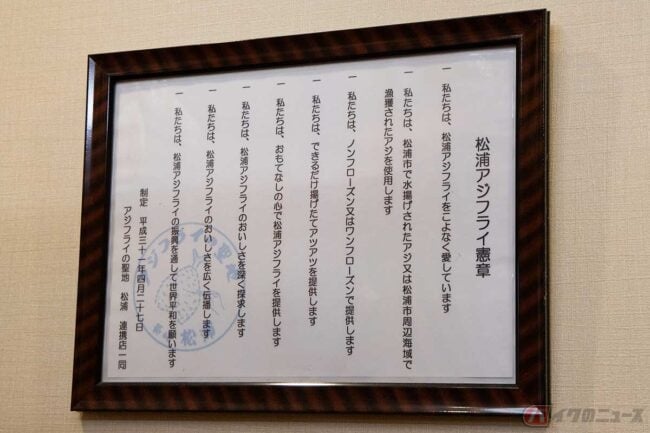 松浦アジフライ憲章
一 私たちは、松浦アジフライをこよなく愛しています
一 私たちは、松浦市で水揚げされたアジ又は松浦市周辺海域で
漁獲されたアジを使用します
一 私たちは、ノンフローズン又はワンフローズンで提供します
一 私たちは、できるだけ揚げたてアツアツを提供します
一 私たちは、おもてなしの心で松浦アジフライを提供します
一 私たちは、松浦アジフライのおいしさを深く探求します
一 私たちは、松浦アジフライのおいしさを広く伝播します
一 私たちは、松浦アジフライの振興を通して世界平和を願います
制定 平成三十一年四月二十七日
アジフライの聖地 松浦 連携店一同
バイクのニュース